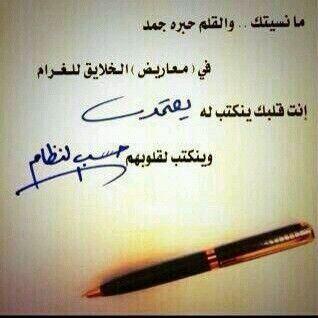 ما نسيتك .. والقلم حبره جمد
في ( معاريض ) الخلايق للغرام
إنت قلبك ينكتب له يعتمد
وينكتب لقلوبهم حسب لنظام